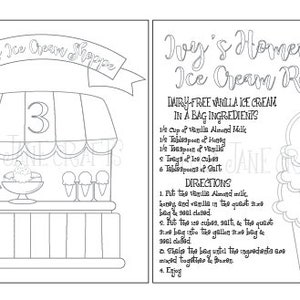 Ice Cream Shoppe
3
Ivy's Home
Ice Cream R
DAIRY-FREE VANILLA ICE CREAM
IN A BAG INGREDIENTS
Cup of Vanilla Almond Milk
Tablespoon of Honey
Teaspoon of Vanilla
5 Trays of Ice Cubes
6 Tablespoons of Salt
DIRECTIONS
1. Put the vanilla Almond milk,
honey, and vanilla in the quart size
bag & seal closed.
2. Put the ice cubes, salt, & the quart
size bag into the gallon size bag &
seal closed.
3. Shake the bag until the ingredients are
mixed together & frozen.
4. Enjoy